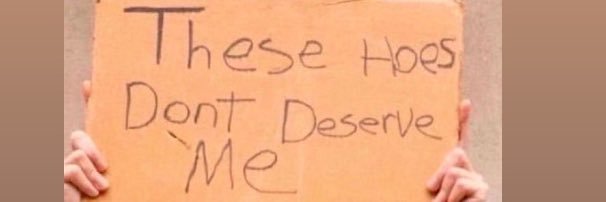 These Hoes
Dont Deserve
Me